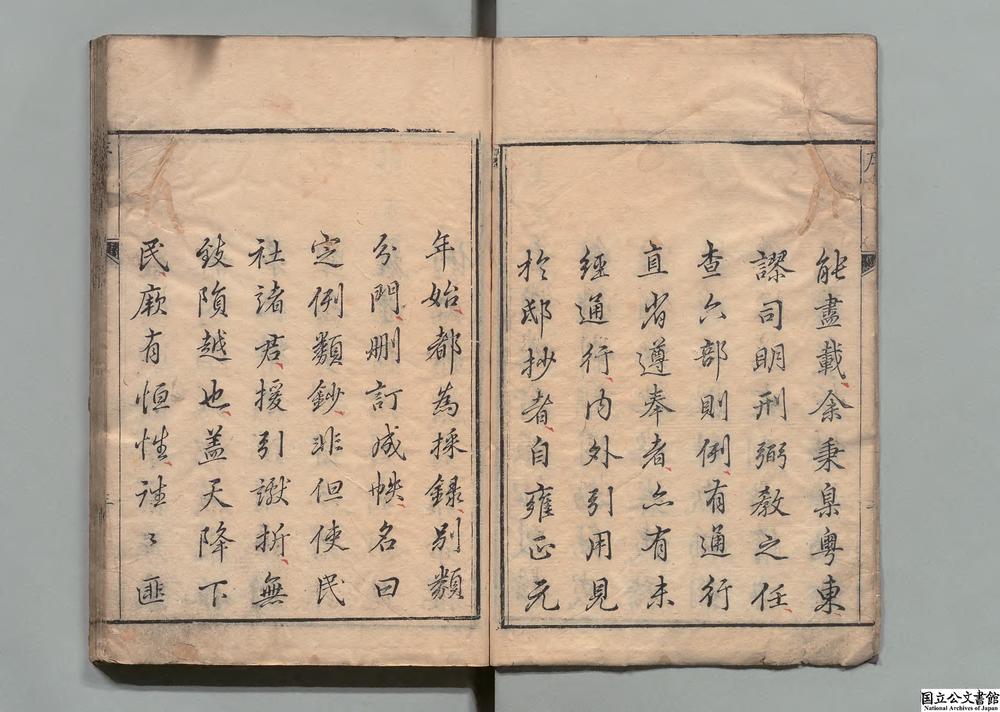 能盡載余秉臬粵東
謬司明刑弼教之任
查六部則例有通行
直省遵奉者亦有未
經通行内外引用見
於邸抄者自雍正元
年始都為採録別類
分門删訂成帙名曰
定例類鈔非但使民
社諸君援引讞折無
致隕越也盖天降下
民厥有恒性誰〻匪
国立公文書館
National Archives of Japan